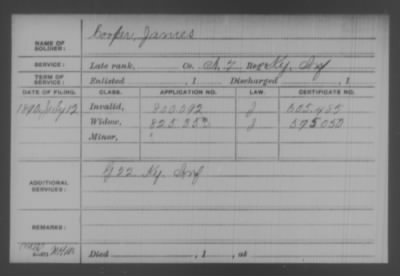 Cooper, James
NAME OF SOLDIER:
SERVICE: Late rank, Co. A, 7 Reg't Ky. Inf
TERM OF SERVICE: Enlisted , 1 Discharged , 1
DATE OF FILING. CLASS. APPLICATION NO. LAW. CERTIFICATE NO.
1890, July 12 Invalid, 800.092 J
Widow, J 595.050
Minor,
ADDITIONAL SERVICES: G 22 Ky. Inf
REMARKS:
Died , 1 , at